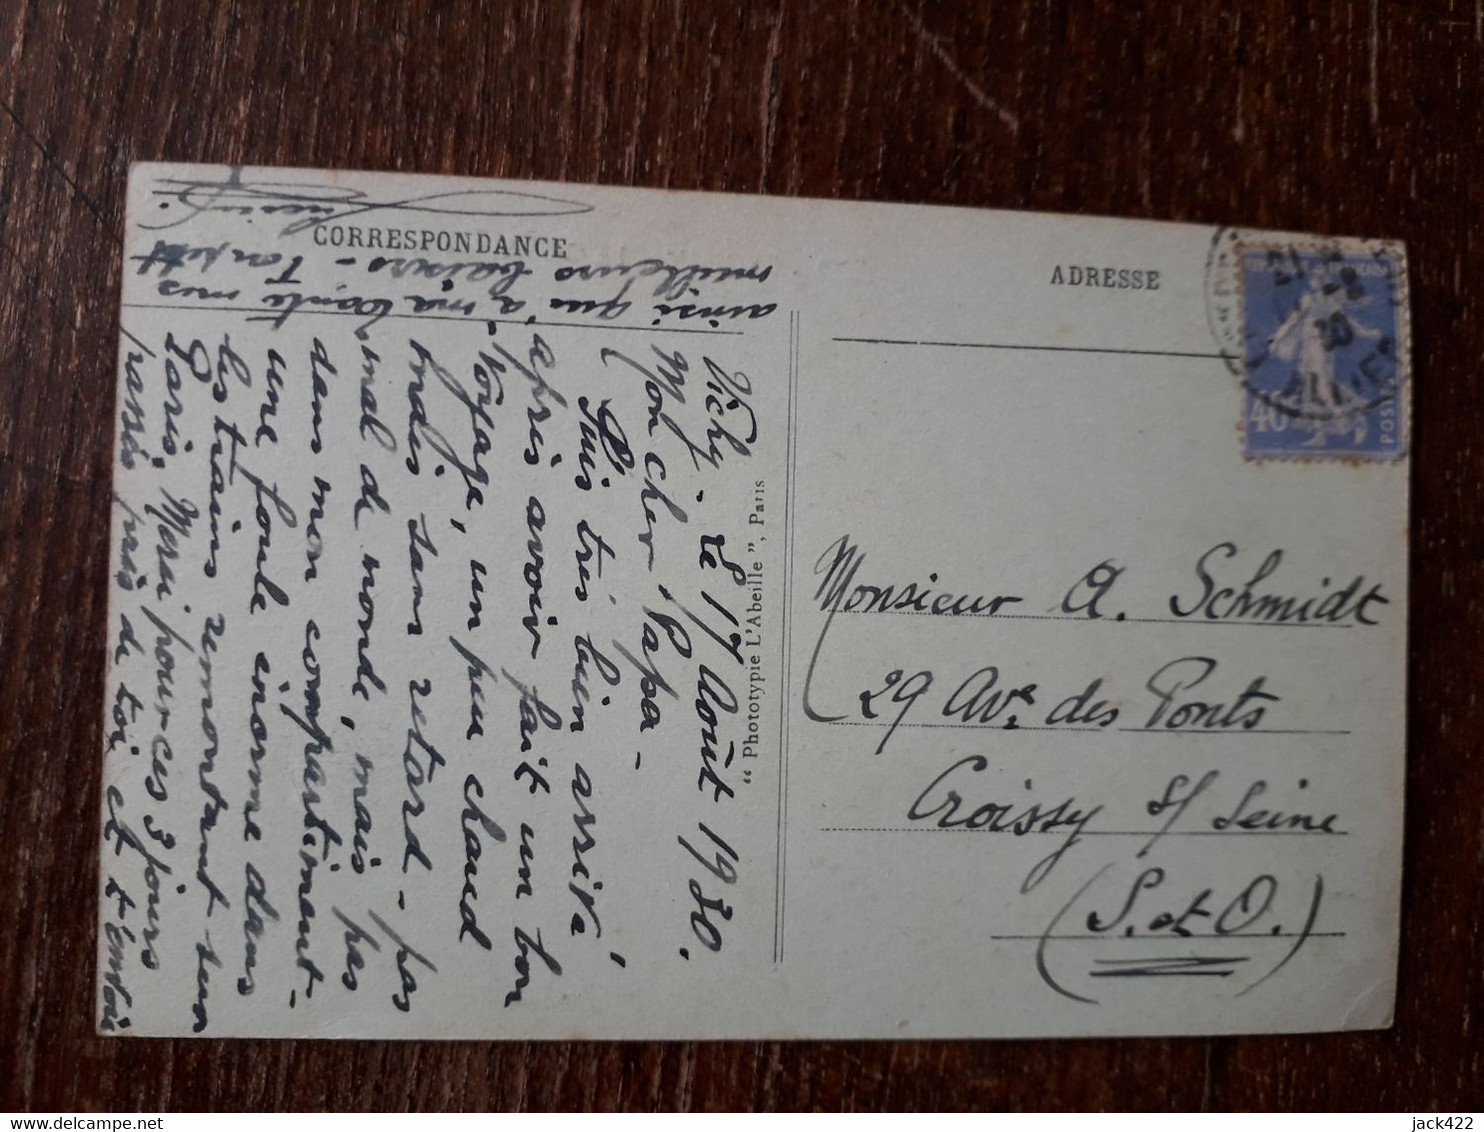 CORRESPONDANCE
ADRESSE
Vichy - Le 17 Août 1930.
Mon cher Papa -
Suis très bien arrivé,
après avoir fait un bon
voyage, un peu chaud
mais sans retard - pas
mal de monde, mais pas
dans mon compartiment -
une foule énorme dans
les trains remontant sur
Paris. Merci pour ces 3 jours
passés près de toi et t'envoie
ainsi qu'à ma Tante mes
meilleurs baisers - Ton petit
"Phototypie L'Abeille", Paris
40
POSTES
ALLIER
30
Monsieur A. Schmidt
29 Ave. des Ponts
Croissy s/ Seine
(S. et O.)
jack422